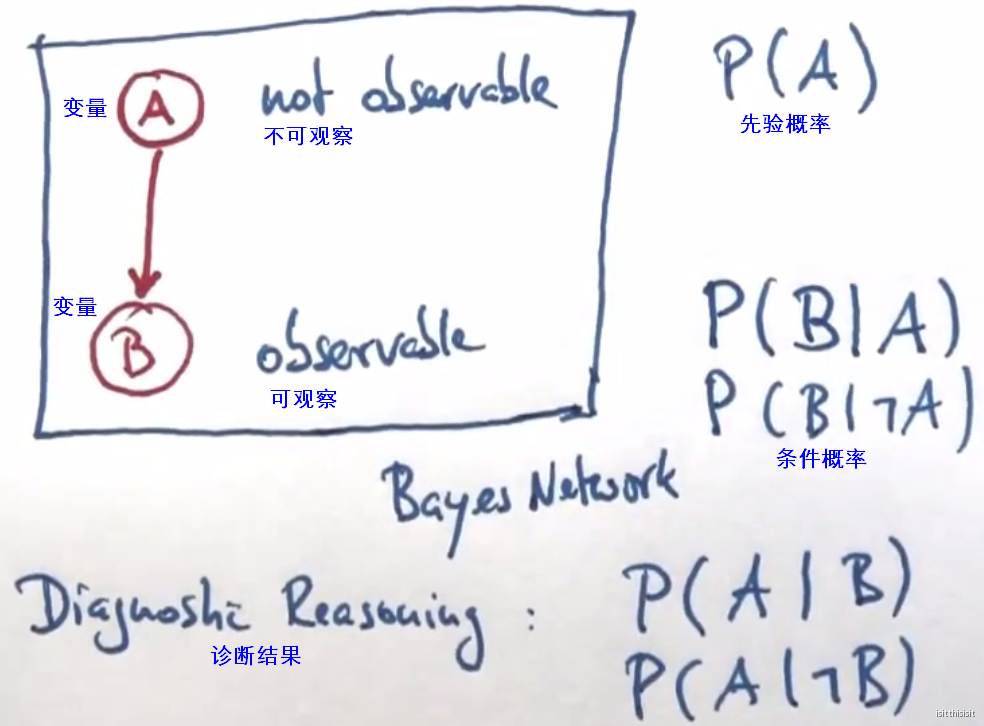 变量
A
not observable
不可观察
P(A)
先验概率
变量
B
observable
可观察
P(B|A)
P(B|¬A)
条件概率
Bayes Network
Diagnostic Reasoning :
诊断结果
P(A|B)
P(A|¬B)
isitthisisit